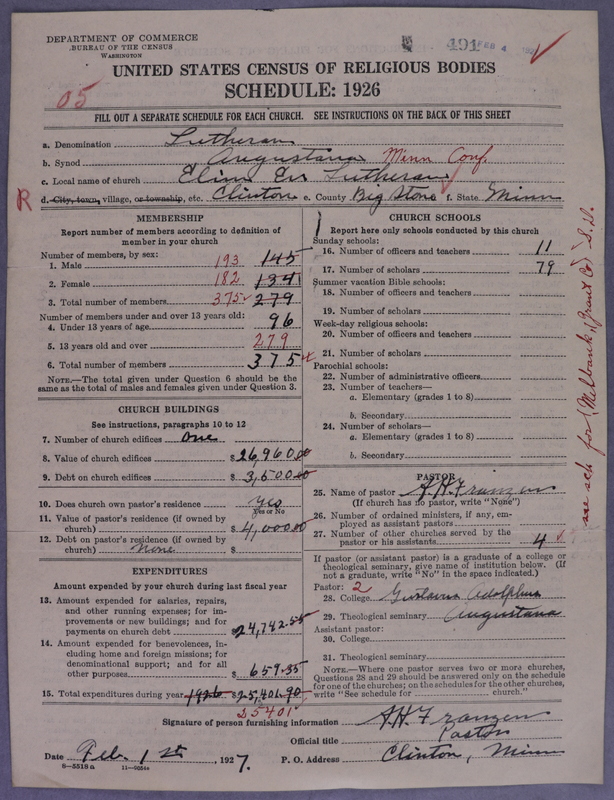 DEPARTMENT OF COMMERCE
BUREAU OF THE CENSUS
WASHINGTON
491 FEB 4 192
UNITED STATES CENSUS OF RELIGIOUS BODIES
SCHEDULE: 1926
05
FILL OUT A SEPARATE SCHEDULE FOR EACH CHURCH. SEE INSTRUCTIONS ON THE BACK OF THIS SHEET
a. Denomination Lutheran
b. Synod Augustana Minn Conf.
c. Local name of church Elim Ev Lutheran
R d. City, town, village, or township, etc. Clinton e. County Big Stone f. State Minn
MEMBERSHIP
Report number of members according to definition of
member in your church
Number of members, by sex:
1. Male 193 145
2. Female 182 134
3. Total number of members 375 279
Number of members under and over 13 years old:
4. Under 13 years of age 96
5. 13 years old and over 279
6. Total number of members 375
NOTE.—The total given under Question 6 should be the
same as the total of males and females given under Question 3.
CHURCH BUILDINGS
See instructions, paragraphs 10 to 12
7. Number of church edifices one
8. Value of church edifices $26,960.00
9. Debt on church edifices $3,500.00
10. Does church own pastor's residence? Yes
Yes or No
11. Value of pastor's residence (if owned by
church) $4,000.00
12. Debt on pastor's residence (if owned by
church) None $
EXPENDITURES
Amount expended by your church during last fiscal year
13. Amount expended for salaries, repairs,
and other running expenses; for im-
provements or new buildings; and for
payments on church debt $24,742.55
14. Amount expended for benevolences, in-
cluding home and foreign missions; for
denominational support; and for all
other purposes $659.35
15. Total expenditures during year 1926 $25,401.90
25401
CHURCH SCHOOLS
Report here only schools conducted by this church
Sunday schools:
16. Number of officers and teachers 11
17. Number of scholars 79
Summer vacation Bible schools:
18. Number of officers and teachers
19. Number of scholars
Week-day religious schools:
20. Number of officers and teachers
21. Number of scholars
Parochial schools:
22. Number of administrative officers
23. Number of teachers—
a. Elementary (grades 1 to 8)
b. Secondary
24. Number of scholars—
a. Elementary (grades 1 to 8)
b. Secondary
PASTOR
25. Name of pastor A.H. Franzen
(If church has no pastor, write "None")
26. Number of ordained ministers, if any, em-
ployed as assistant pastors
27. Number of other churches served by the
pastor or his assistants 4
If pastor (or assistant pastor) is a graduate of a college or
theological seminary, give name of institution below. (If
not a graduate, write "No" in the space indicated.)
Pastor: 2
28. College Gustavus Adolphus
29. Theological seminary Augustana
Assistant pastor:
30. College
31. Theological seminary
NOTE.—Where one pastor serves two or more churches,
Questions 28 and 29 should be answered only on the schedule
for one of the churches; on the schedules for the other churches,
write "See schedule for church."
Signature of person furnishing information A.H. Franzen
Official title Pastor
Date Feb. 1st, 1927. P. O. Address Clinton, Minn
8—5518a 11—9654a
see sch for (Melbank, Grant Co) S.D.